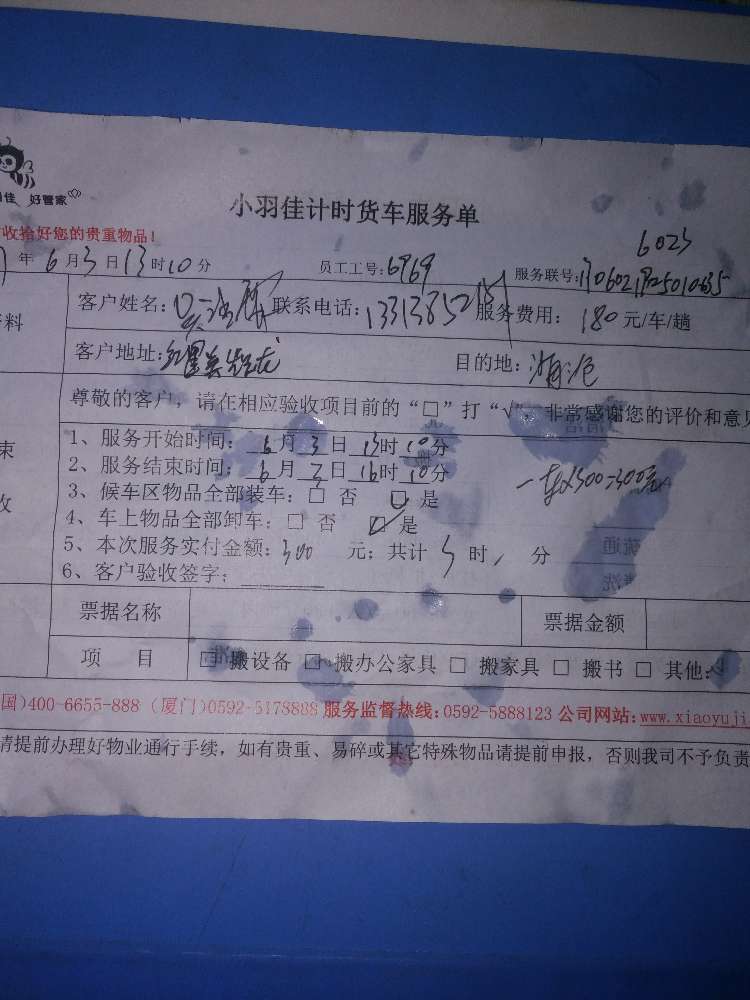 佳 好管家
小羽佳计时货车服务单
收拾好您的贵重物品!
6023
年6月3日13时10分 员工工号:6969 服务联号:
料
客户姓名: 联系电话: 服务费用: 180元/车/趟
客户地址: 目的地:
尊敬的客户,请在相应验收项目前的“□”打“√”,非常感谢您的评价和意见
束
1、服务开始时间:6月3日13时10分
2、服务结束时间:6月3日16时10分
收
3、候车区物品全部装车:□ 否 □ 是
4、车上物品全部卸车:□ 否 □ 是
5、本次服务实付金额:300 元;共计3时 分
6、客户验收签字:
票据名称 票据金额
项 目 □ 搬设备 □ 搬办公家具 □ 搬家具 □ 搬书 □ 其他:
国)400-6655-888 (厦门)0592-5178888 服务监督热线:0592-5888123 公司网站:www.xiaoyuji
请提前办理好物业通行手续,如有贵重、易碎或其它特殊物品请提前申报,否则我司不予负责